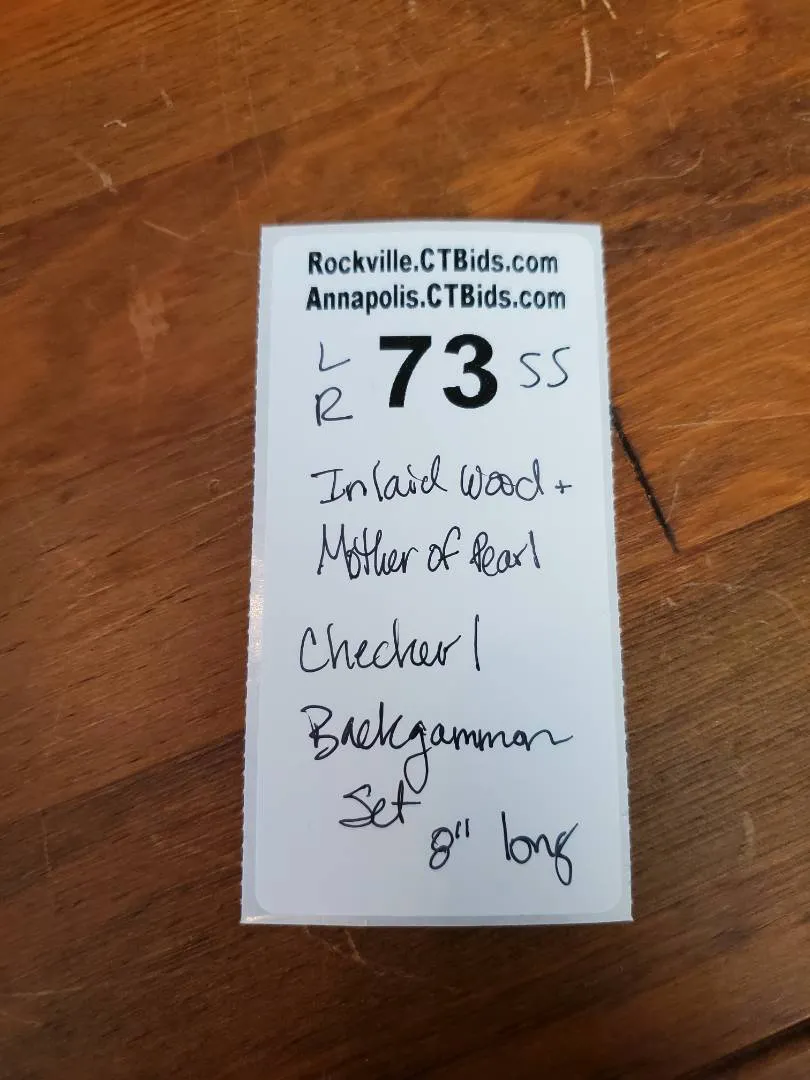 Rockville.CTBids.com
Annapolis.CTBids.com
L
R 73 SS
Inlaid Wood +
Mother of Pearl
Checker/
Backgammon
Set
8" long